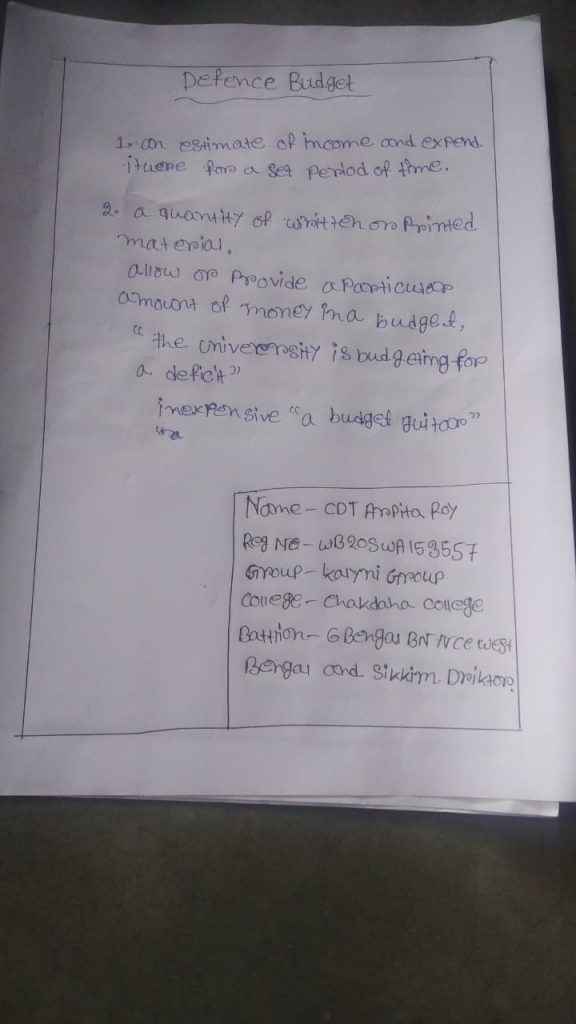 Defence Budget
1. an estimate of income and expend
iture for a set period of time.
2. a quantity of written or Printed
material.
allow or Provide a Particular
amount of money in a budget,
"the univeersity is budgeting for
a deficit"
inexpensive "a budget guitar"
"a
Name - CDT Arpita Roy
Reg No - WB20SWA153557
Group - Kalyni Group
College - Chakdaha College
Battlion - 6 Bengal BN NCC West
Bengal and Sikkim Driktor.